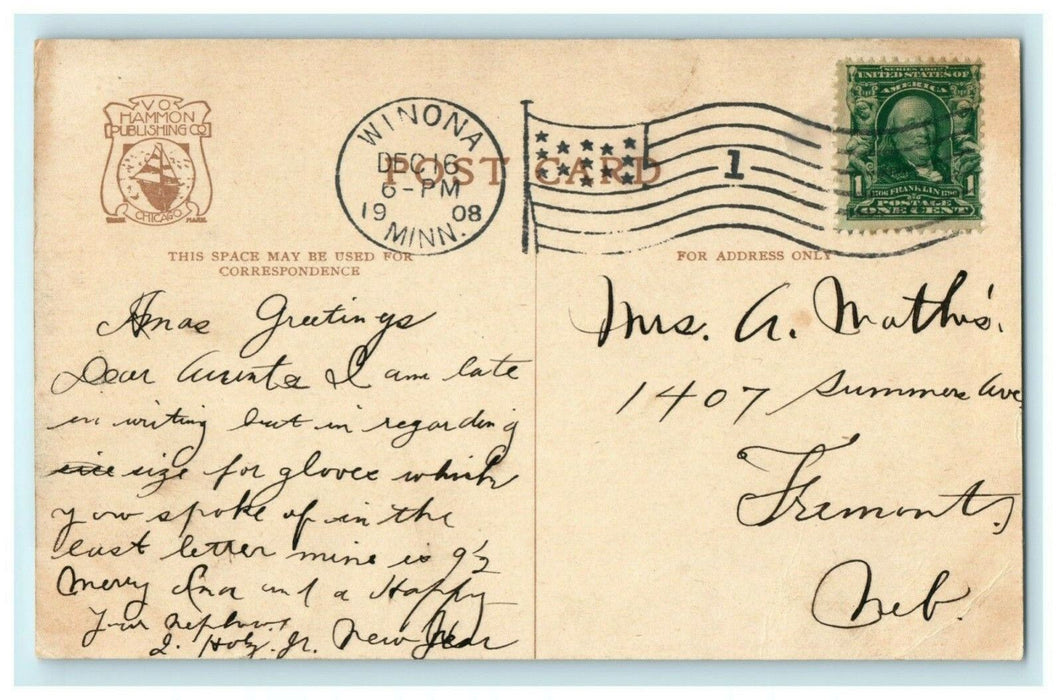 V.O.
HAMMON
PUBLISHING CO
CHICAGO
TRADE MARK
WINONA
DEC 16
6-PM
1908
MINN.
POST CARD
1
SERIES 1902
UNITED STATES OF
AMERICA
1 1706 FRANKLIN 1790 1
POSTAGE
ONE CENT
THIS SPACE MAY BE USED FOR
CORRESPONDENCE
FOR ADDRESS ONLY
Xmas Greetings
Dear Auntie I am late
in writing but in regarding
size for gloves which
you spoke of in the
last letter mine is 9½
Merry Xmas and a Happy
New Year
Your nephew
Holz Jr.
Mrs. A. Mathis.
1407 Summer Ave.
Fremont,
Neb.